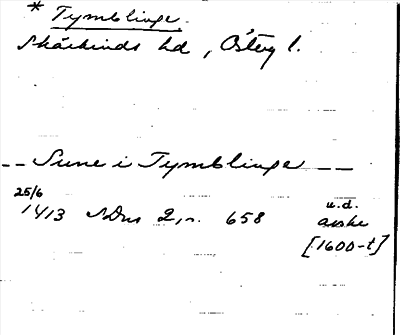 * Tymblinge.
Skärkinds hd, Östergl.
-- Sune i Tymblinge --
25/6
1413 SDns 2, n. 658
u.d.
avskr
[1600-t]